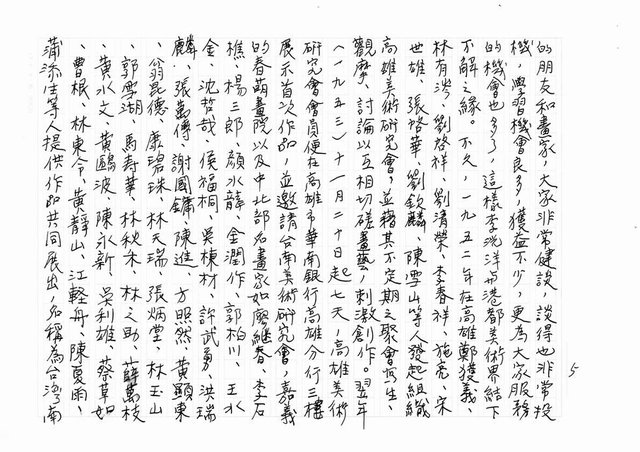 5
的朋友和畫家，大家非常健談，談得也非常投
機，學習機會良多，獲益不少，更為大家服務
的機會也多了，這樣李洸洋與港都美術界結下
不解之緣。不久，一九五二年在高雄鄭獲義、
林有涔、劉啓祥、劉清榮、李春祥、施亮、宋
世雄、張啓華、劉欽麟、陳雪山等人發起組織
高雄美術研究會，並藉其不定期之聚會寫生、
觀摩、討論以互相切磋畫藝，刺激創作。翌年
（一九五三）十一月二十日起七天，高雄美術
研究會會員便在高雄市華南銀行高雄分行三樓
展示首次作品，並邀請台南美術研究會，嘉義
的春萌畫院以及中北部名畫家如廖繼春、李石
樵、楊三郎、顏水龍、金潤作、郭柏川、王水
金、沈哲哉、侯福桐、吳棟材、許武勇、洪瑞
麟、張萬傳、謝國鏞、陳進、方照然、黃顯東
、翁崑德、康碧珠、林天瑞、張炳堂、林玉山
、郭雪湖、馬壽華、林秋禾、林之助、薛萬枝
、黃水文、黃鷗波、陳永新、吳利雄、蔡草如
、曹根、林東令、黃靜山、江輕舟、陳夏雨、
蒲添生等人提供作品共同展出，名稱為台灣南